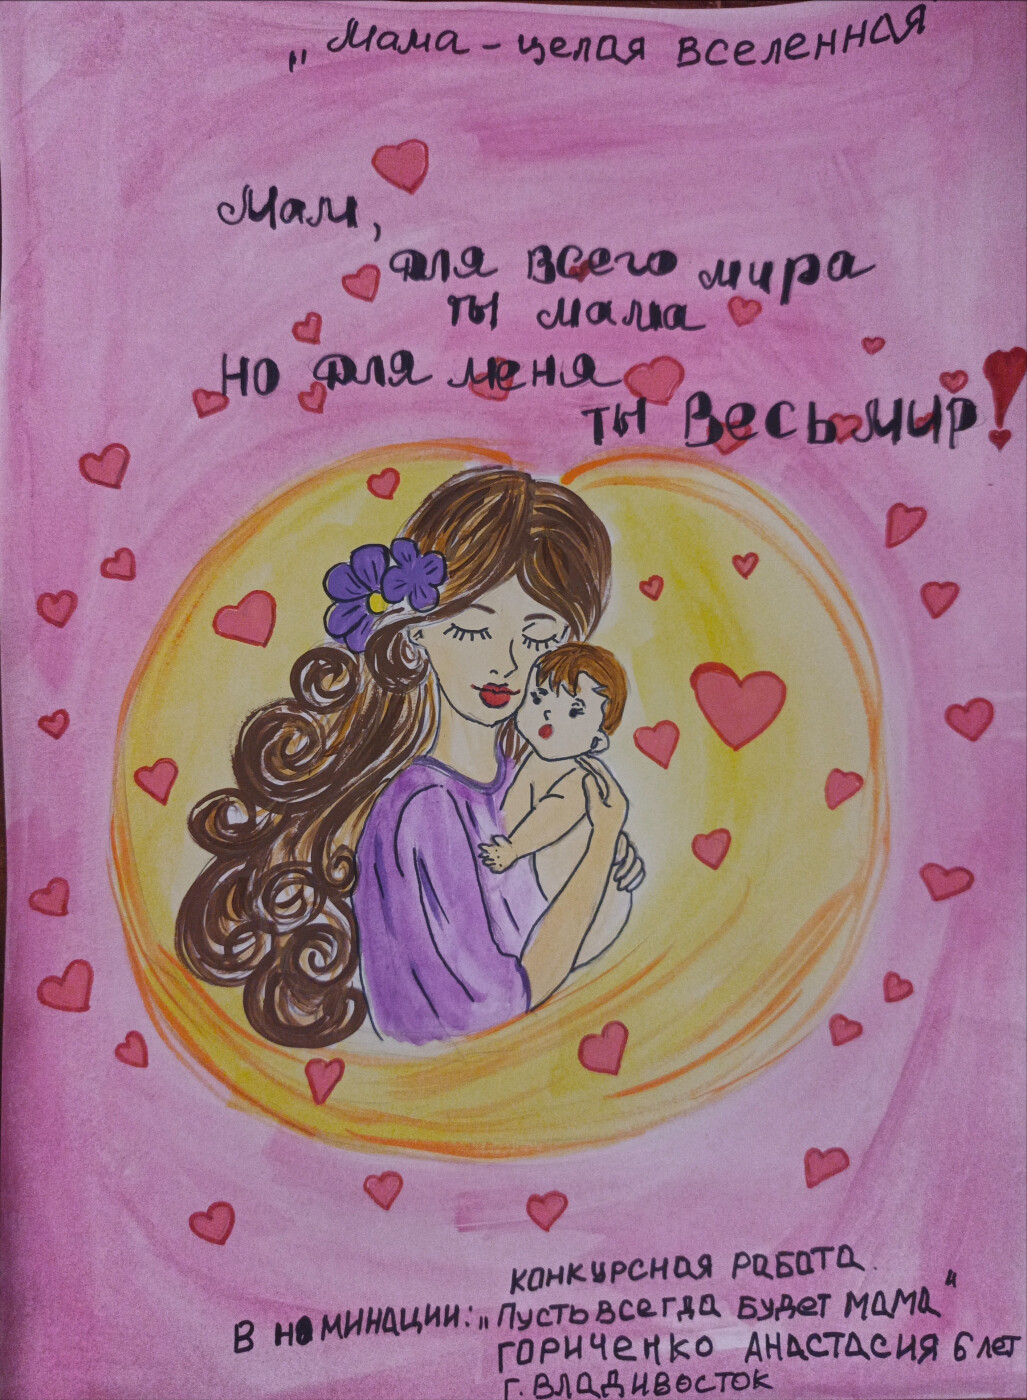 „Мама - целая вселенная
Мам,
для всего мира
ты мама
но для меня
ты Весь мир!
конкурсная работа.
в номинации: „Пусть всегда будет мама"
Гориченко Анастасия 6 лет
г. Владивосток